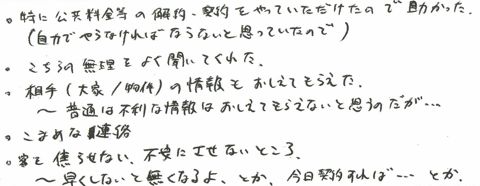 。特に公共料金等の解約・契約をやっていただけたので助かった.
(自力でやらなければならないと思っていたので)
。こちらの無理をよく聞いてくれた.
。相手(大家/物件)の情報をおしえてもらえた.
～普通は不利な情報はおしえてもらえないと思うのだが…
。こまめな連絡
。客を焦らせない、不安にさせないところ.
～早くしないと無くなるよ、とか、今日契約すれば…とか.